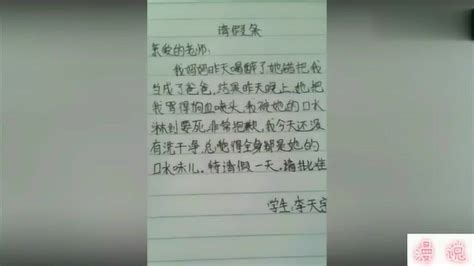 请假条
亲爱的老师:
我妈妈昨天喝醉了她错把我
当成了爸爸,结果昨天晚上,她把
我骂得狗血喷头,我被她的口水
淋到要死,非常抱歉,我今天还没
有洗干净,总觉得全身都是她的
口水味儿。特请假一天,请批准
学生:李天宇
漫说